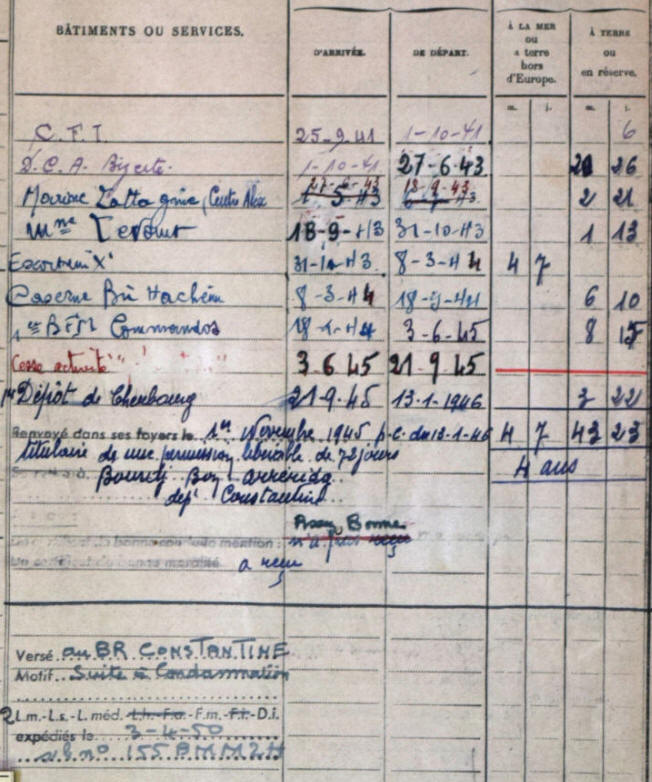 BÂTIMENTS OU SERVICES. D'ARRIVÉE. DE DÉPART. À LA MER ou à terre hors d'Europe. À TERRE ou en réserve.
m. j. m. j.
C.F.I. 25-9-41 1-10-41 6
D.C.A. Bizerte. 1-10-41 27-6-43 20 26
27-6-43 18-9-43
Marine Centre 2 21
Mne 18-9-43 31-10-43 1 13
31-10-43 8-3-44 4 7
Caserne Bir Hacheim 8-3-44 18-9-44 6 10
1er BFM Commandos 18-9-44 3-6-45 8 15
Cesse activité 3.6.45 21.9.45
Dépôt de Cherbourg 21-9-45 13-1-1946 3 22
Renvoyé dans ses foyers le 1er Novembre 1945 p.c. du 13-1-46 4 7 43 23
titulaire de une permission libérable de 72 jours 4 ans
Bordj Bou Arreridj
dept Constantine
Assez Bonne
n'a pas reçu
a reçu
Versé au BR CONSTANTINE
Motif Suite à Condamnation
2 L.m.-L.s.-L. méd.-L.h.-F.o.-F.m.-F.t.-D.i.
expédiés le 3-4-50
no 155 BMM2H